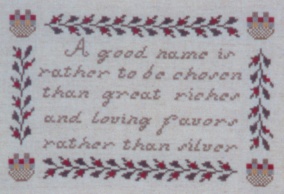 A good name is
rather to be chosen
than great riches
and loving favors
rather than silver